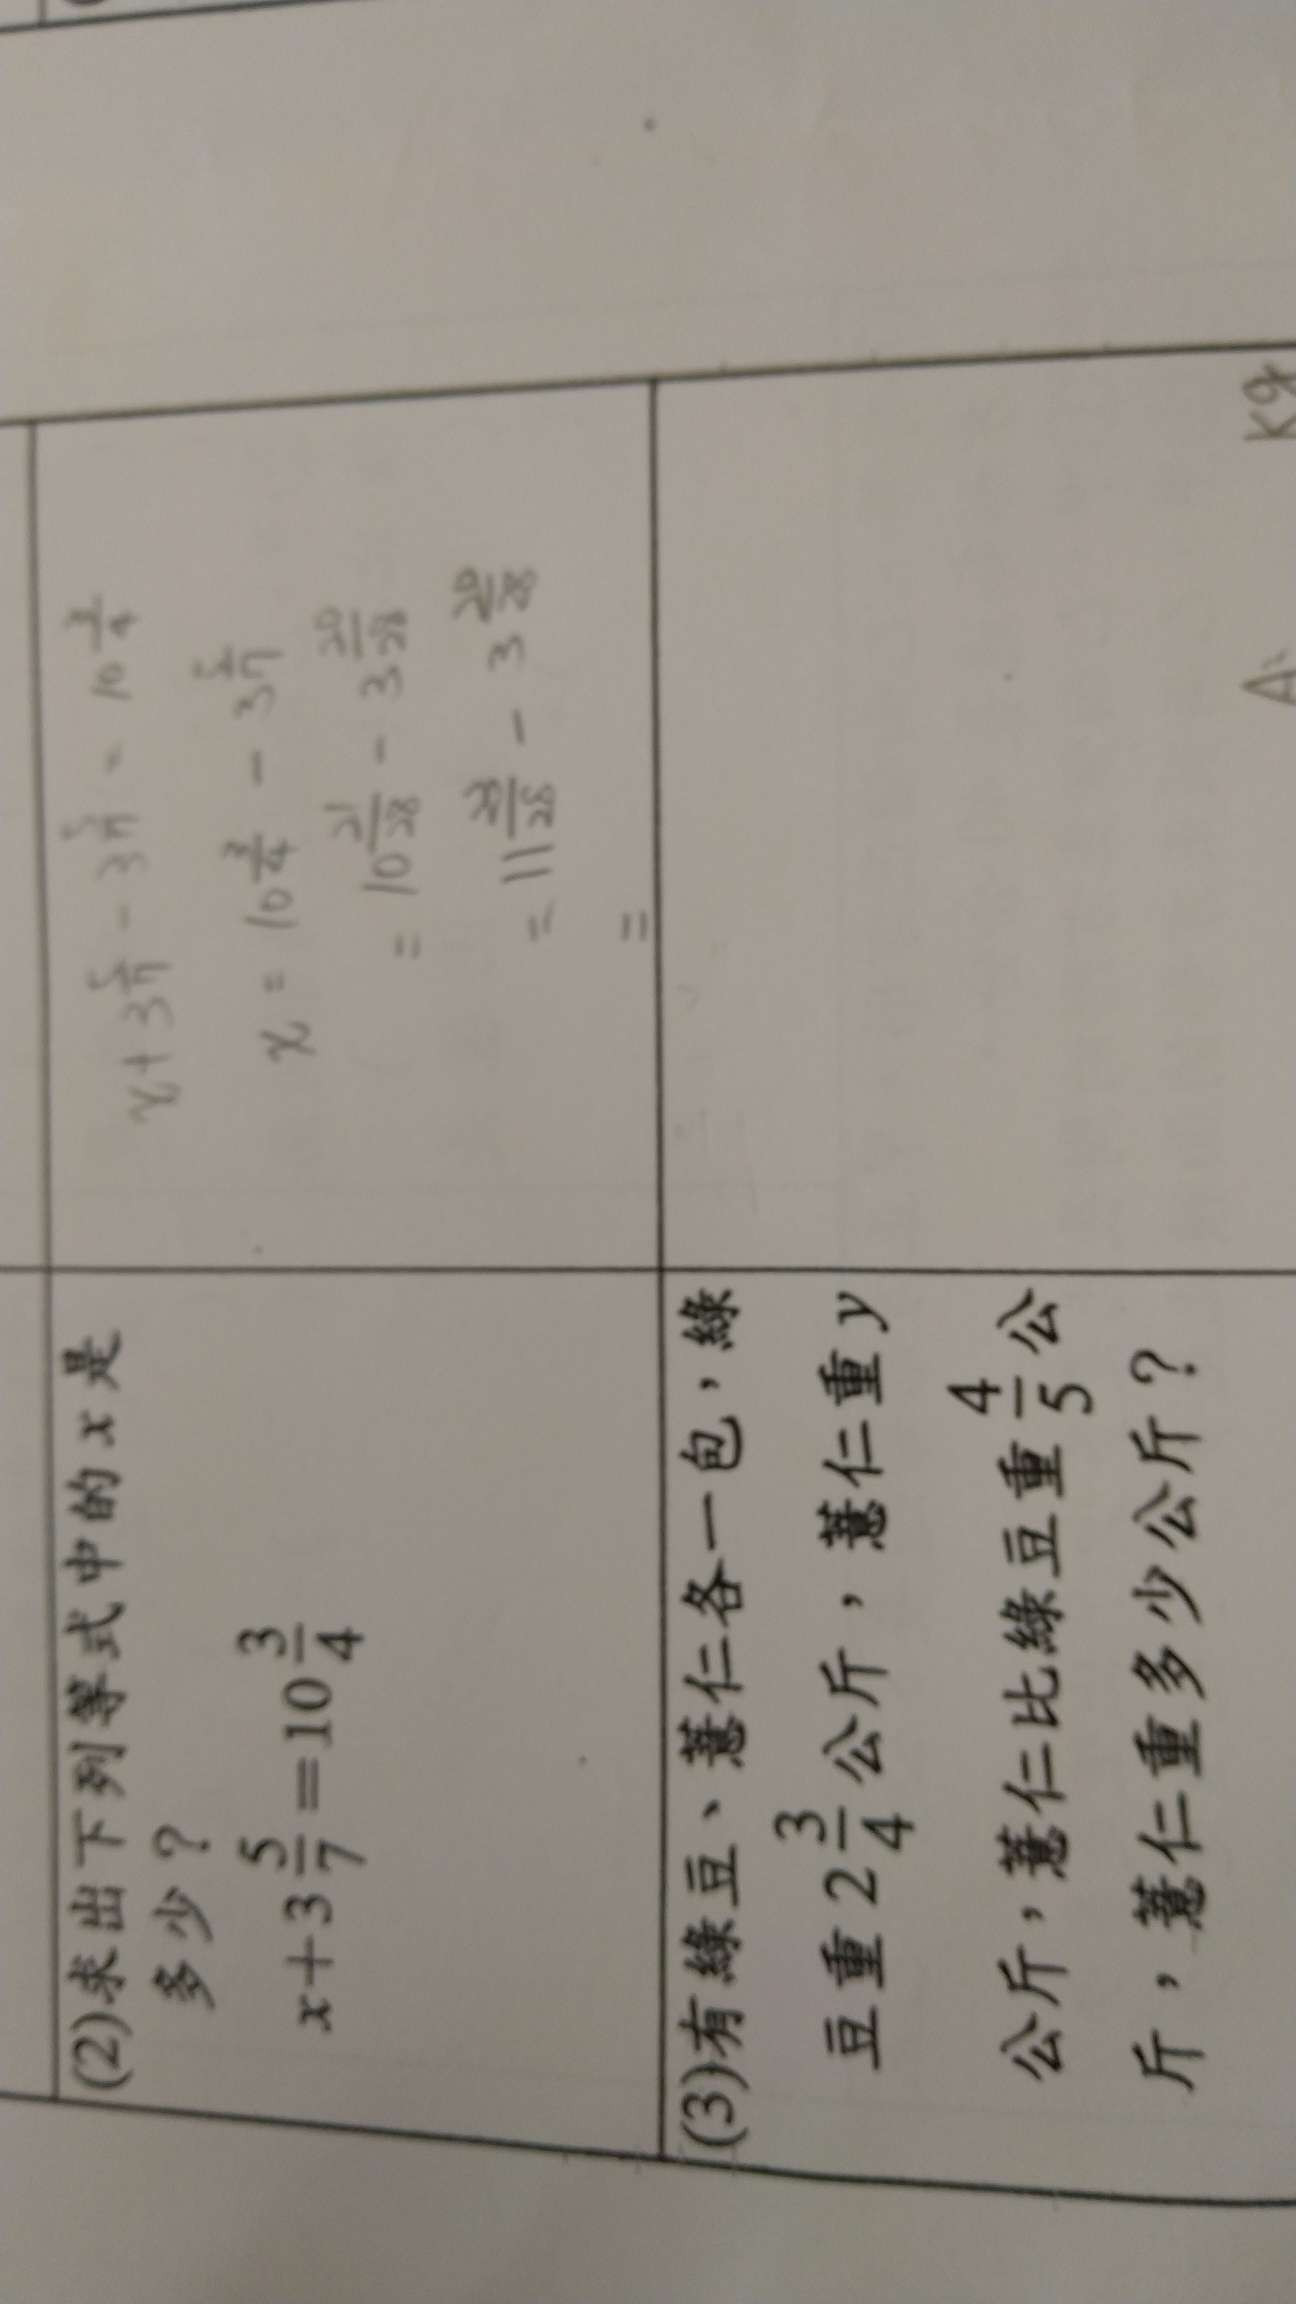 (2)求出下列等式中的 x 是
多少?
x+3 5/7=10 3/4
x+3 5/7 - 3 5/7 = 10 3/4
x = 10 3/4 - 3 5/7
= 10 21/28 - 3 20/28
= 11 - 3 20/28
=
(3)有綠豆、薏仁各一包,綠
豆重 2 3/4 公斤,薏仁重 y
公斤,薏仁比綠豆重 4/5 公
斤,薏仁重多少公斤?
A: Kg